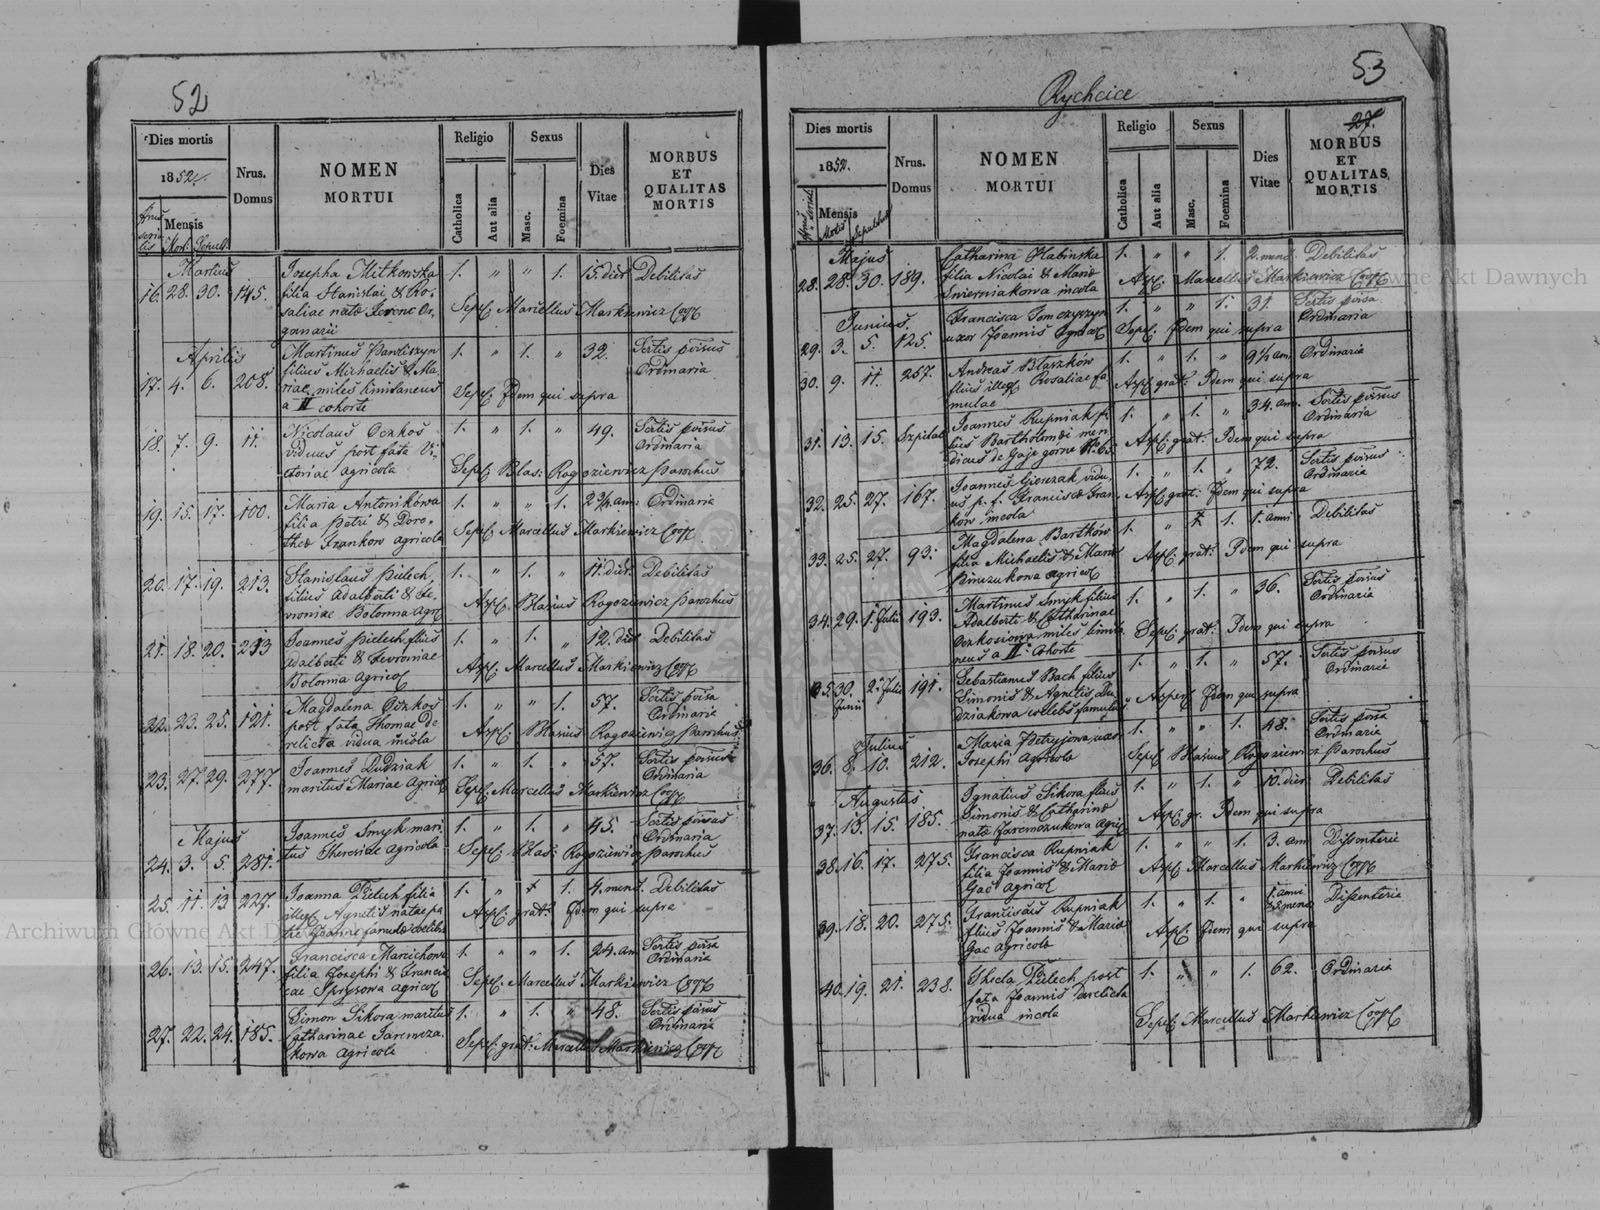 52
Dies mortis
1852.
Mensis
Mort. Sepult.
Nrus.
Domus
NOMEN
MORTUI
Religio
Catholica
Aut alia
Sexus
Masc.
Foemina
Dies
Vitae
MORBUS
ET
QUALITAS
MORTIS
Martius
16. 28. 30. 145.
Josepha Mitkowska
filia Stanislai & Ro-
saliae natae Ferenc Or-
ganarii
1. " " 1. 15. dier Debilitas
Sepel: Marcellus Markiewicz Coop
Aprilis
17. 4. 6. 208.
Martinus
filius Michaelis & Ma-
riae, miles limitaneus
a II cohorte
1. " 1. " 32.
Ordinaria
Sepel: Idem qui supra
18. 7. 9. 11.
Nicolaus Oczkoś
viduus post fata Vi-
ctoriae agricola
1. " 1. " 49.
Ordinaria
Sepel: Blas: Rogoziewicz Parochus
19. 15. 17. 100.
Maria Antonikowa
filia Petri & Doro-
theae Frankow agricola
1. " " 1. 2 3/4 ann Ordinaria
Sepel: Marcellus Markiewicz Coop
20. 17. 19. 213.
Stanislaus Pielech,
filius Adalberti & Fe-
vroniae Bolonna Agrc
1. " 1. " 11. dier Debilitas
Asp: Blasius Rogoziewicz Parochus
21. 18. 20. 213
Joannes Pielech filius
Adalberti & Fevroniae
Bolonna Agricol
1. " 1. " 12. dier Debilitas
Asp: Marcellus Markiewicz Coop
22. 23. 25. 121.
Magdalena Oczkoś
post fata Thomae De
relicta vidua incola
1. " " 1. 57.
Ordinaria
Asp: Blasius Rogoziewicz Parochus
23. 27. 29. 277.
Joannes Dudziak
maritus Mariae Agricol
1. " 1. " 57.
Ordinaria
Sepel: Marcellus Markiewicz Coop
Majus
24. 3. 5. 281.
Joannes Smyk mari-
tus Theresiae agricola
1. " 1. " 45.
Ordinaria
Sepel: Blas: Rogoziewicz Parochus
25. 11. 13 227.
Joanna Pielech filia
illeg. Agnetis natae pa-
tre Joanne famulo coelibe
1. " 1. 4. mens. Debilitas
Asp: grat: Idem qui supra
26. 13. 15. 247.
Francisca Marcichowa
filia Josephi & Francis-
cae Sprysowa agricol
1. " " 1. 24. an
Ordinaria
Sepel: Marcellus Markiewicz Coop
27. 22. 24. 185.
Simon Sikora maritus
Catharinae Jaremcza-
kowa agricola
1. " 1. " 48.
Ordinaria
Sepel: grat: Marcellus Markiewicz Coop
53
Rychcice
27.
Dies mortis
1852.
Mensis
Mortis Sepulturae
Nrus.
Domus
NOMEN
MORTUI
Religio
Catholica
Aut alia
Sexus
Masc.
Foemina
Dies
Vitae
MORBUS
ET
QUALITAS
MORTIS
Majus
28. 28. 30. 189.
Catharina Habinska
filia Nicolai & Mariae
Swierniakowa incola
1. " " 1. 2. mens. Debilitas
Asp: Marcellus Markiewicz Coop
Junius
29. 3. 5. 125.
Francisca Tomczyszyn
uxor Joannis Agricol
1. " " 1. 31.
Ordinaria
Sepel: Idem qui supra
30. 9. 11. 257.
Andreas Błaszków
filius illeg. Rosaliae fa-
mulae
1. " 1. " 9 1/2 ann Ordinaria
Asp: grat: Idem qui supra
31. 13. 15. Szpital
Joannes Rupniak fi-
lius Bartholomaei men
dicus de Gaje gorne No 65.
1. " 1. " 34. ann.
Ordinaria
Asp: grat: Idem qui supra
32. 25. 27. 167.
Joannes Gierczak vidu-
us p. f. Franciscae Fran-
ków incola
1. " 1. " 72.
Ordinaria
Asp: grat: Idem qui supra
33. 25. 27. 93.
Magdalena Bartków
filia Michaelis & Mariae
agricol
1. " 1. 1. anni Debilitas
Asp: grat: Idem qui supra
34. 29. 1. Julii 193.
Martinus Smyk filius
Adalberti & Catharinae
Oczkosiowa miles limita
neus a II Cohorte
1. " 1. " 36.
Ordinaria
Sepel: grat: Idem qui supra
35. 30. Junii 2. Julii 191.
Sebastianus Bach filius
Simonis & Agnetis Du
dziakowa coelebs famulus
1. " 1. " 57.
Ordinaria
Asper: Idem qui supra
Julius
36. 8. 10. 212.
Maria Petryjowa uxo
Josephi Agricola
1. " " 1. 48.
Ordinaria
Sepel: Blasius Rogoziewicz Parochus
Augustus
37. 13. 15. 185.
Ignatius Sikora filius
Simonis & Catharinae
nata Jaremczukowa Agric
1. " 1. " 10. dier. Debilitas
Asp: gr. Idem qui supra
38. 16. 17. 275.
Francisca Rupniak
filia Joannis & Mariae
Gac Agricol
1. " " 1. 3. ann Dissenterie
Asp: Marcellus Markiewicz Coop
39. 18. 20. 275.
Franciscus Rupniak
filius Joannis & Mariae
Gac agricola
1. " 1. " Dissenterie
Asp: Idem qui supra
40. 19. 21. 238.
Thecla Pielech post
fata Joannis Derelicta
vidua incola
1. " " 1. 62. Ordinaria
Sepel: Marcellus Markiewicz Coop
Archiwum Główne Akt Dawnych